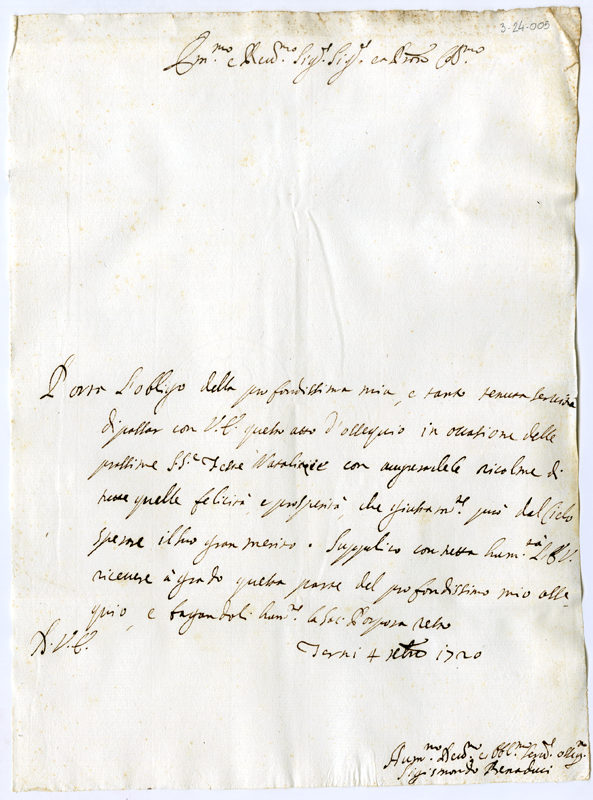 3-24-005
Em.mo e Reu.mo Sig.r Sig.r e Pron Col.mo
Porta l'obligo della profondissima mia, e tanto tenuta seruitù
di passar con V.E. questo atto d'ossequio in occasione delle
prossime SS.e Feste Natalizie con augurandele ricolme di
tutte quelle felicità, e prosperità, che giustam.te può dal Cielo
sperare il suo gran merito. Supplico con tutta hum.tà l'E.V.
riceuere à grado questa parte del profondissimo mio osse-
quio, e bagiandoli hum.te la Sac: Porpora resto
D. V. E.
Terni 4 1720
Hum.mo Deu.mo e Obbl.mo Seru.r
Sigismondo Benaduci